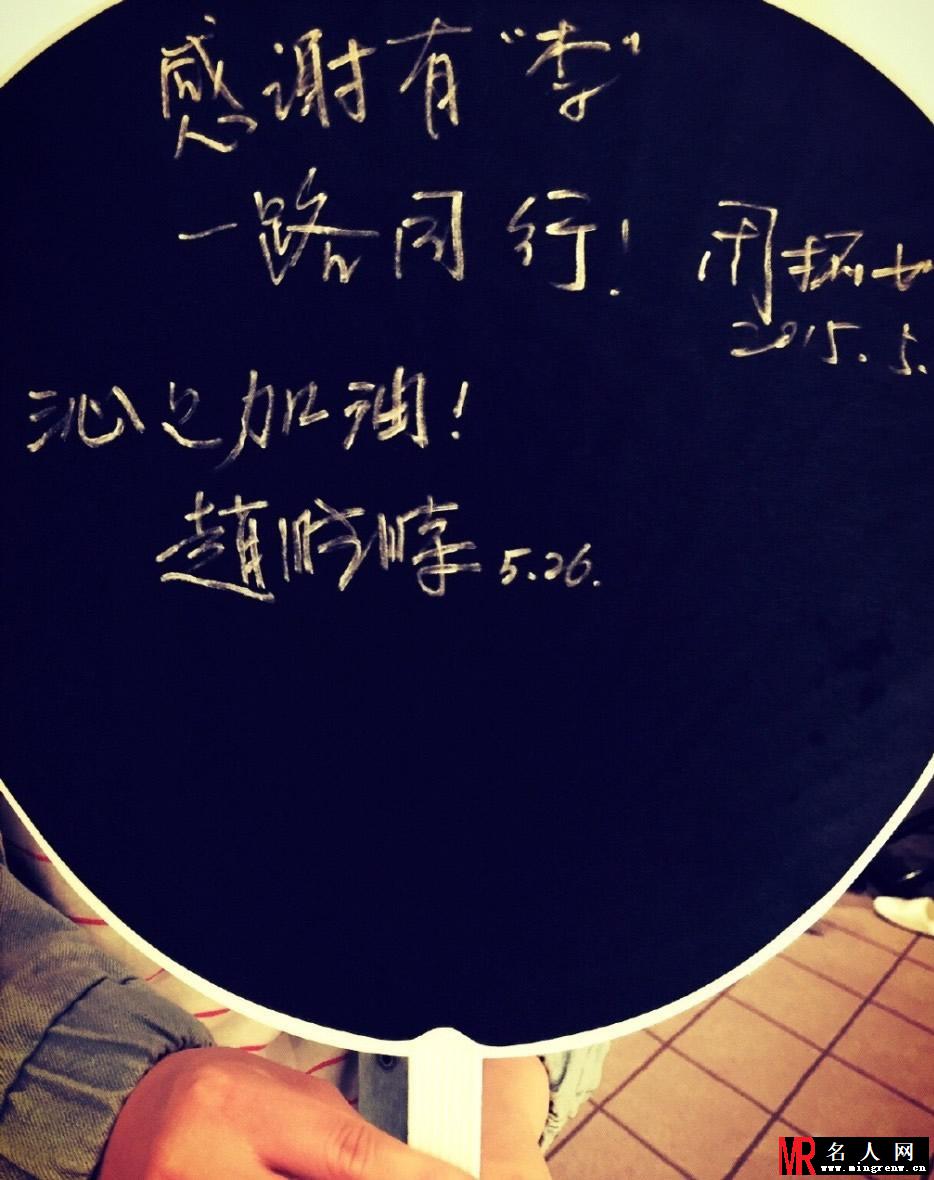 感谢有“李”
一路同行！
周扬
2015.5.
沁之加油！
趙
5.26.
MR 名人网
www.mingrenw.cn